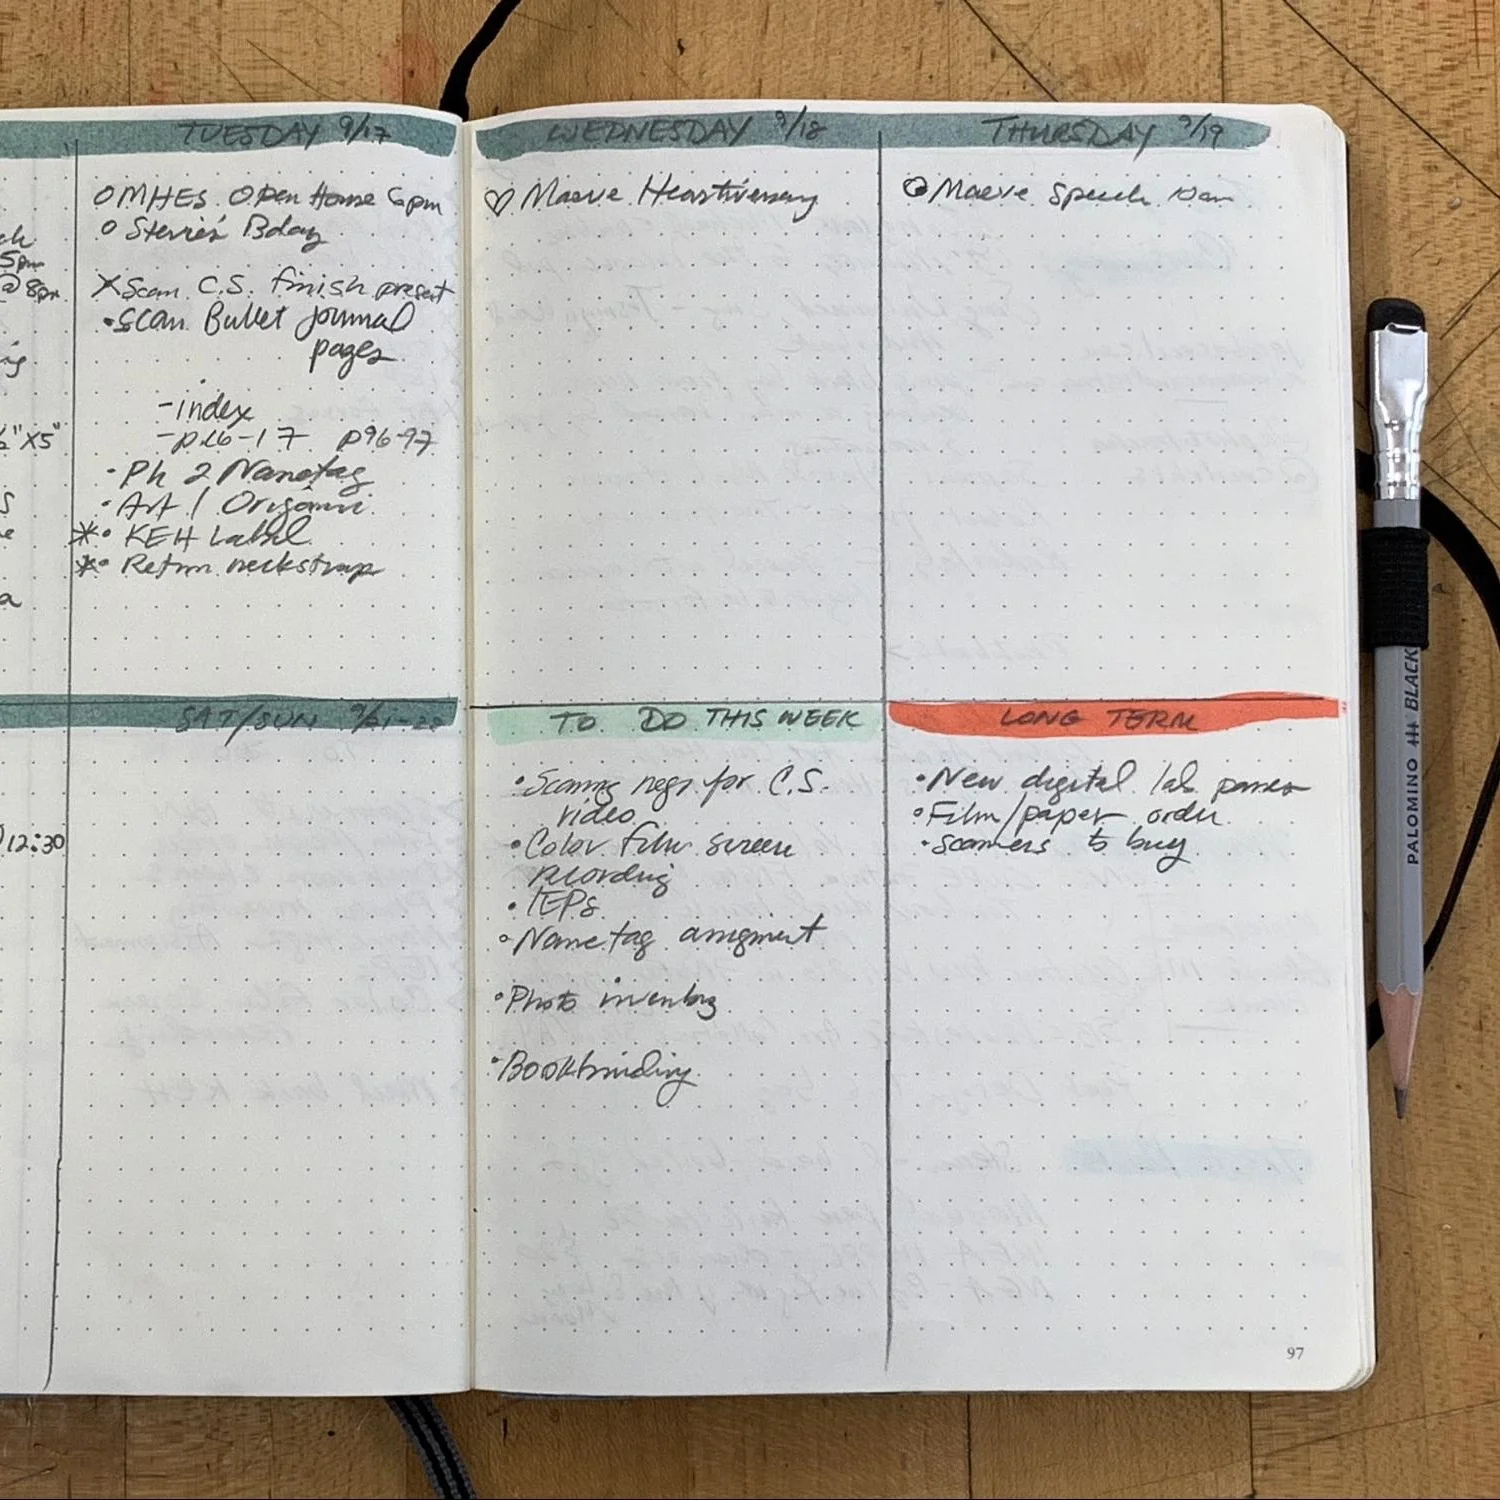 TUESDAY 9/17
O MHES Open House 6pm
o Stevie's Bday
X Scan C.S. finish present
• Scan Bullet journal
pages
- index
- p16-17 p96-97
• Ph 2 Nametag
• Art 1 Origami
* • KEH Label
* • Return neckstrap
5pm
@ 8pm
"X5"
a
SAT/SUN 9/21-22
12:30
WEDNESDAY 9/18
♡ Maeve Heartiversary
THURSDAY 9/19
Maeve Speech 10am
TO DO THIS WEEK
• Scanning negs for C.S.
video
• Color film screen
recording
• IEPs
• Name tag
• Photo inventory
• Bookbinding
LONG TERM
• New digital lab
• Film/paper order
• Scanners to buy
97
PALOMINO BLACK